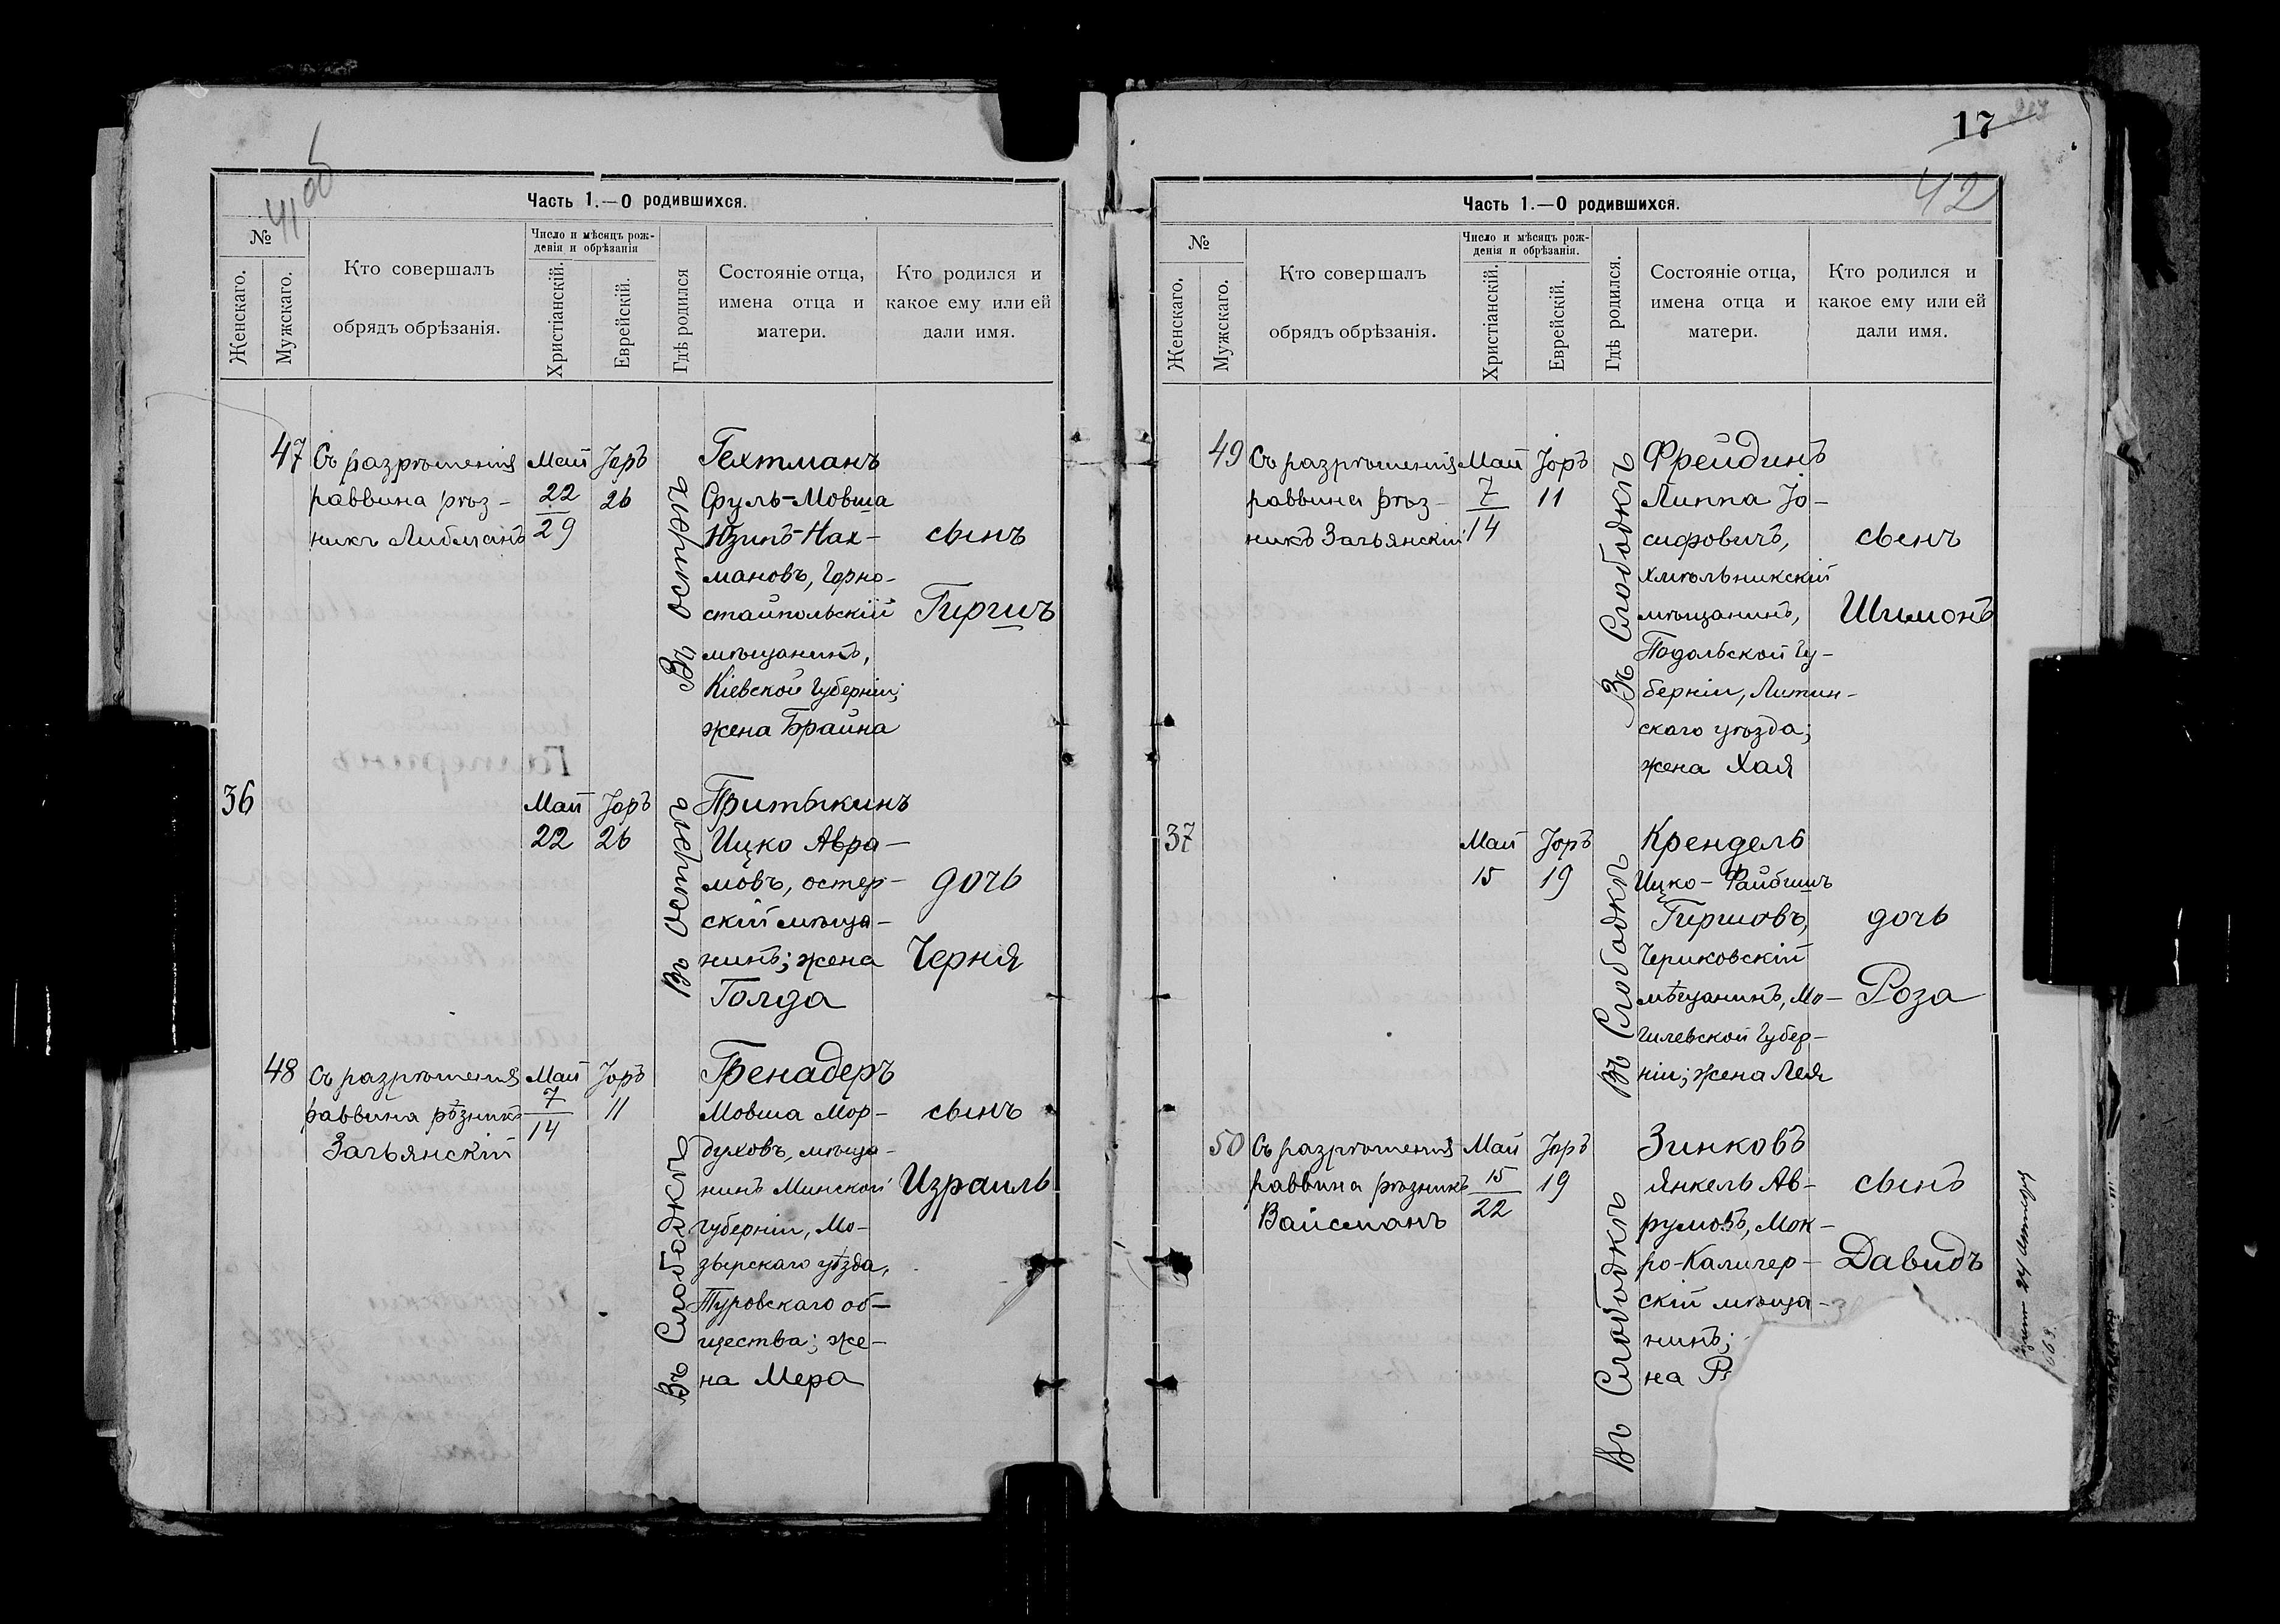 41 об
Часть 1.—О родившихся.
№
Женскаго.
Мужскаго.
Кто совершалъ
обрядъ обрѣзанія.
Число и мѣсяцъ рож-
денія и обрѣзанія
Христіанскій.
Еврейскій.
Гдѣ родился
Состояніе отца,
имена отца и
матери.
Кто родился и
какое ему или ей
дали имя.
47
Съ разрѣшенія
раввина рѣз-
никъ Либманъ
Май
22
29
Іоръ
26
Въ Острѣ
Гехтманъ
Сруль-Мовша
Нах-
мановъ, Горно-
стайпольскій
мѣщанинъ,
Кіевской Губерніи;
жена Брайна
сынъ
Гиршъ
36
Май
22
Іоръ
26
Въ Острѣ
Притыкинъ
Ицко Авра-
мовъ, остер-
скій мѣща-
нинъ; жена
Голда
дочь
Черня
48
Съ разрѣшенія
раввина рѣзникъ
Загъянскій
Май
7
14
Іоръ
11
Въ Слободкѣ
Гренадеръ
Мовша Мор-
духовъ, мѣща-
нинъ Минской
губерніи, Мо-
зырскаго уѣзда,
Туровскаго об-
щества; же-
на Мера
сынъ
Израиль
17
42
Часть 1.—О родившихся.
№
Женскаго.
Мужскаго.
Кто совершалъ
обрядъ обрѣзанія.
Число и мѣсяцъ рож-
денія и обрѣзанія.
Христіанскій.
Еврейскій.
Гдѣ родился.
Состояніе отца,
имена отца и
матери.
Кто родился и
какое ему или ей
дали имя.
49
Съ разрѣшенія
раввина рѣз-
никъ Загъянскій
Май
7
14
Іоръ
11
Въ Слободкѣ
Фрейдинъ
Липпа Іо-
сифовичъ,
Хмѣльникскій
мѣщанинъ,
Подольской гу-
берніи, Литин-
скаго уѣзда;
жена Хая
сынъ
Шимонъ
37
Май
15
Іоръ
19
Въ Слободкѣ
Крендель
Ицко-Файбишъ
Гиршовъ,
Чериковскій
мѣщанинъ, Мо-
гилевской Губер-
ніи; жена Лея
дочь
Роза
50
Съ разрѣшенія
раввина рѣзникъ
Вайсманъ
Май
15
22
Іоръ
19
Въ Слободкѣ
Зинковъ
Янкель Ав-
румовъ, Мок-
ро-Калигер-
скій мѣща-
нинъ;
на
сынъ
Давидъ